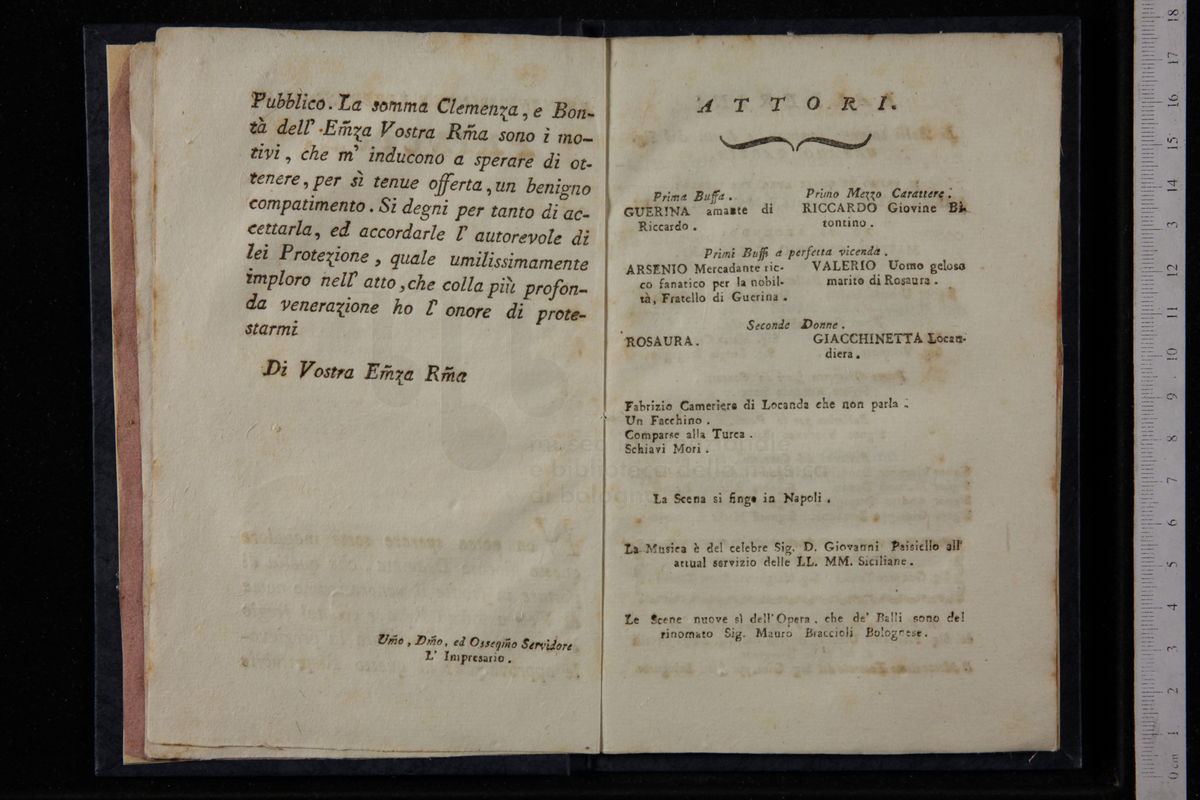 Pubblico. La somma Clemenza, e Bon-
tà dell' Em̃za Vostra Rm̃a sono i mo-
tivi, che m' inducono a sperare di ot-
tenere, per sì tenue offerta, un benigno
compatimento. Si degni per tanto di ac-
cettarla, ed accordarle l' autorevole di
lei Protezione, quale umilissimamente
imploro nell' atto, che colla più profon-
da venerazione ho l' onore di prote-
starmi
Di Vostra Em̃za Rm̃a
Um̃o, Dm̃o, ed Osseqm̃o Servidore
L' Impresario.
ATTORI.
Prima Buffa.
GUERINA amante di
Riccardo.
Primo Mezzo Carattere.
RICCARDO Giovine Bi-
tontino.
Primi Buffi a perfetta vicenda.
ARSENIO Mercadante ric-
co fanatico per la nobil-
tà, Fratello di Guerina.
VALERIO Uomo geloso
marito di Rosaura.
Seconde Donne.
ROSAURA.
GIACCHINETTA Locan-
diera.
Fabrizio Cameriere di Locanda che non parla.
Un Facchino.
Comparse alla Turca.
Schiavi Mori.
La Scena si finge in Napoli.
La Musica è del celebre Sig. D. Giovanni Paisiello all'
attual servizio delle LL. MM. Siciliane.
Le Scene nuove sì dell'Opera, che de' Balli sono del
rinomato Sig. Mauro Braccioli Bolognese.
museo internazionale
e biblioteca della musica
di bologna
0 cm 1 2 3 4 5 6 7 8 9 10 11 12 13 14 15 16 17 18